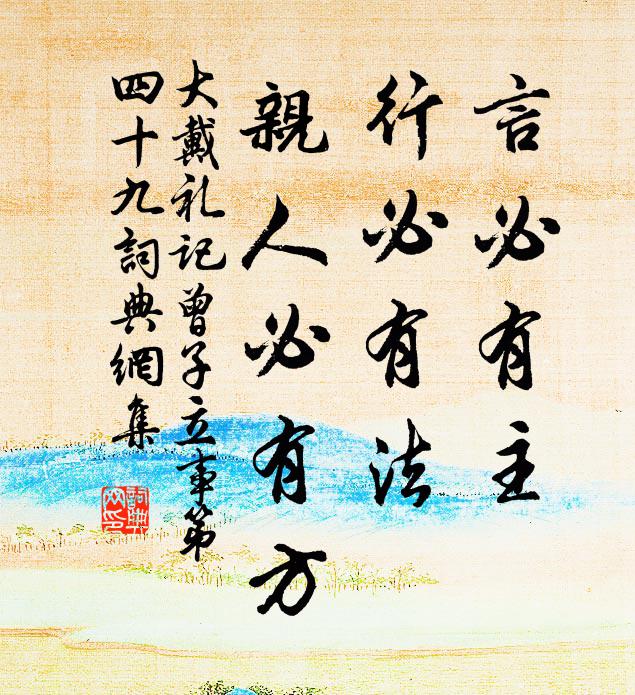 言必有主
行必有法
親人必有方
大戴礼记曾子立事第
四十九詞典網集
詞典
网印